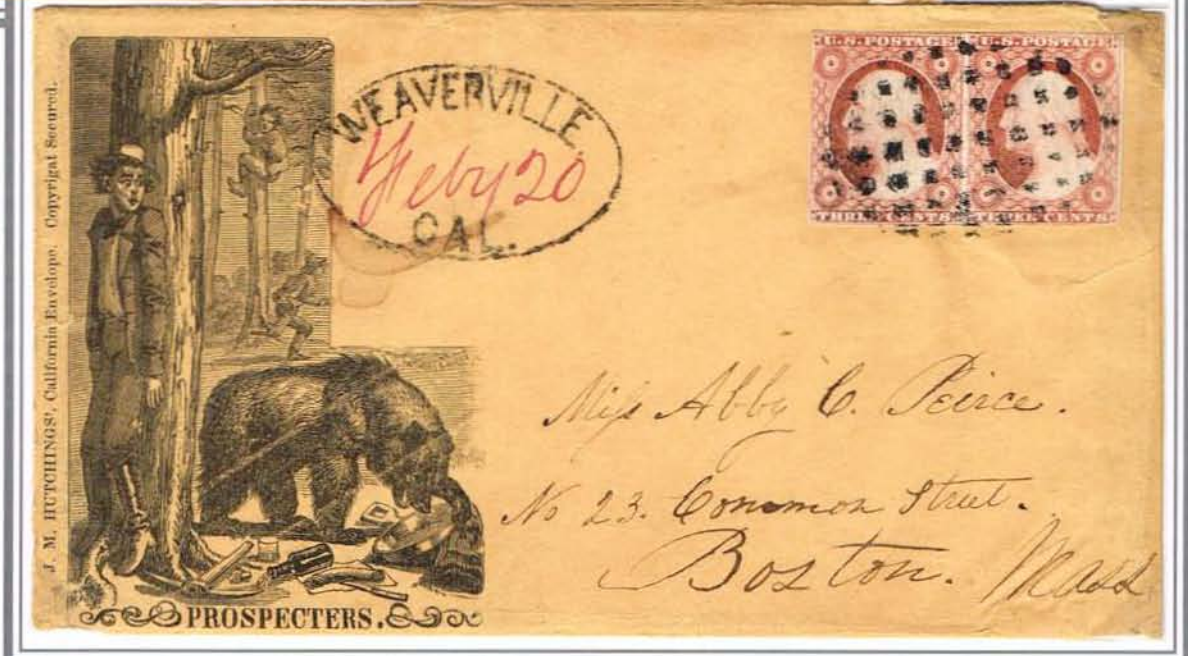 J. M. HUTCHINGS', California Envelope. Copyrigat Secured.
WEAVERVILLE,
Feby 20
CAL.
U.S. POSTAGE U.S. POSTAGE
THREE CENTS THREE CENTS
Miss Abby C. Peirce.
No 23. Common Street.
Boston. Mass
PROSPECTERS.